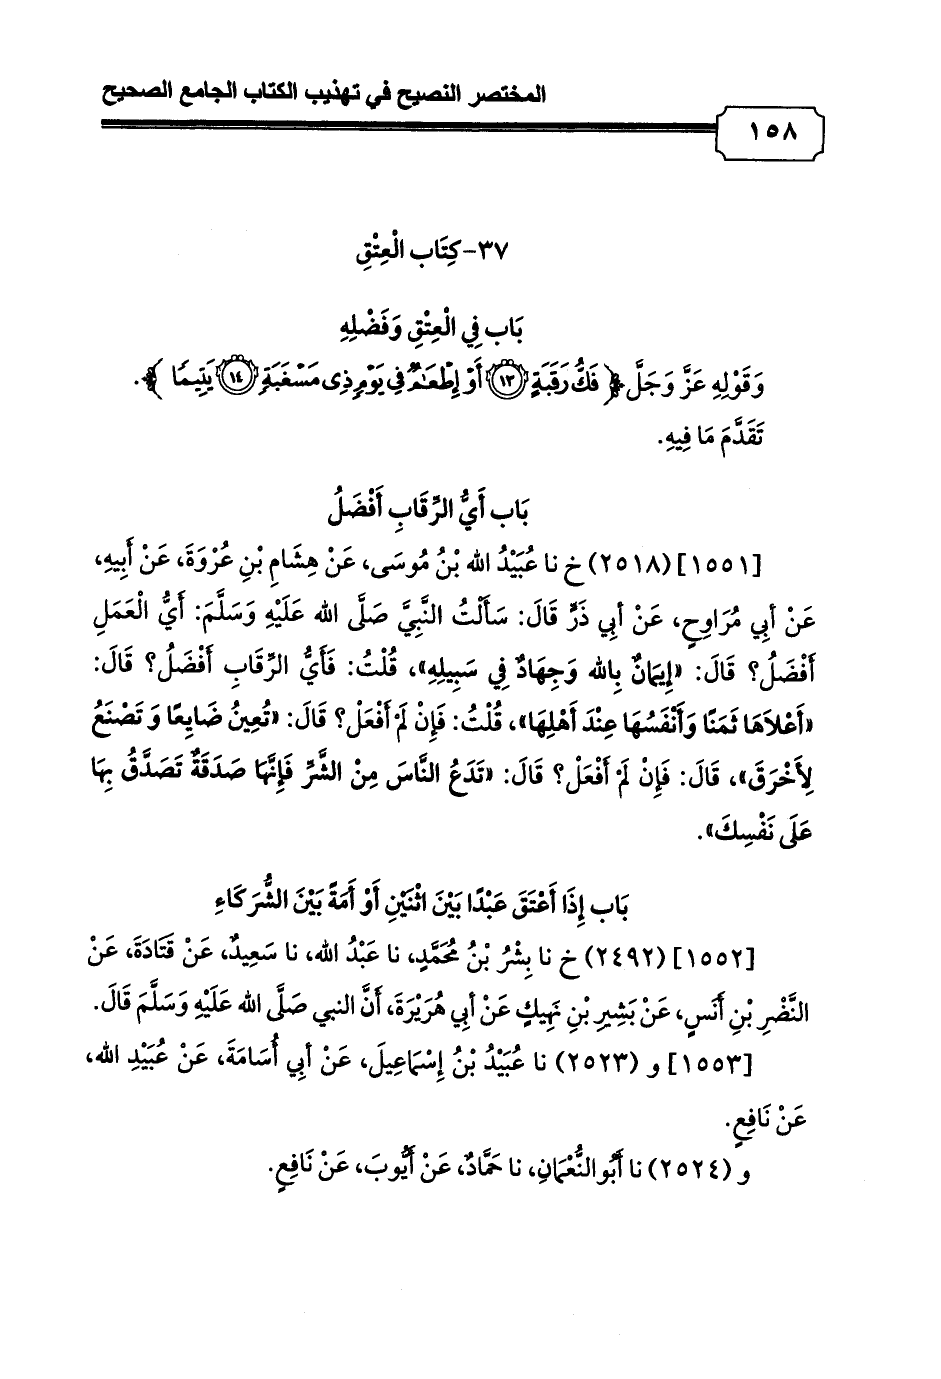 المختصر النصيح في تهذيب الكتاب الجامع الصحيح
١٥٨
٣٧- كِتَاب الْعِتْقِ
بَاب فِي الْعِتْقِ وَفَضْلِهِ
وَقَوْلِهِ عَزَّ وَجَلَّ ﴿فَكُّ رَقَبَةٍ ١٣ أَوْ إِطْعَٰمٌ فِي يَوْمٍ ذِي مَسْغَبَةٍ ١٤ يَتِيمًا﴾.
تَقَدَّمَ مَا فِيهِ.
بَاب أَيُّ الرِّقَابِ أَفْضَلُ
[١٥٥١] (٢٥١٨) خ نا عُبَيْدُ الله بْنُ مُوسَى، عَنْ هِشَامِ بْنِ عُرْوَةَ، عَنْ أَبِيهِ،
عَنْ أبِي مُرَاوِحٍ، عَنْ أبِي ذَرٍّ قَالَ: سَأَلْتُ النَّبِيَّ صَلَّى الله عَلَيْهِ وَسَلَّمَ: أَيُّ الْعَمَلِ
أَفْضَلُ؟ قَالَ: «إِيمَانٌ بِالله وَجِهَادٌ فِي سَبِيلِهِ»، قُلْتُ: فَأَيُّ الرِّقَابِ أَفْضَلُ؟ قَالَ:
«أَعْلاَهَا ثَمَنًا وَأَنْفَسُهَا عِنْدَ أَهْلِهَا»، قُلْتُ: فَإِنْ لَمْ أَفْعَلْ؟ قَالَ: «تُعِينُ ضَايِعًا وَتَصْنَعُ
لِأَخْرَقَ»، قَالَ: فَإِنْ لَمْ أَفْعَلْ؟ قَالَ: «تَدَعُ النَّاسَ مِنْ الشَّرِّ فَإِنَّهَا صَدَقَةٌ تَصَدَّقُ بِهَا
عَلَى نَفْسِكَ».
بَاب إِذَا أَعْتَقَ عَبْدًا بَيْنَ اثْنَيْنِ أَوْ أَمَةً بَيْنَ الشُّرَكَاءِ
[١٥٥٢] (٢٤٩٢) خ نا بِشْرُ بْنُ مُحَمَّدٍ، نا عَبْدُ الله، نا سَعِيدٌ، عَنْ قَتَادَةَ، عَنْ
النَّضْرِ بْنِ أَنَسٍ، عَنْ بَشِيرِ بْنِ نَهِيكٍ عَنْ أبِي هُرَيْرَةَ، أَنَّ النبي صَلَّى الله عَلَيْهِ وَسَلَّمَ قَالَ.
[١٥٥٣] و (٢٥٢٣) نا عُبَيْدُ بْنُ إِسْمَاعِيلَ، عَنْ أبِي أُسَامَةَ، عَنْ عُبَيْدِ الله،
عَنْ نَافِعٍ.
و (٢٥٢٤) نا أَبُوالنُّعْمَانِ، نا حَمَّادٌ، عَنْ أَيُّوبَ، عَنْ نَافِعٍ.